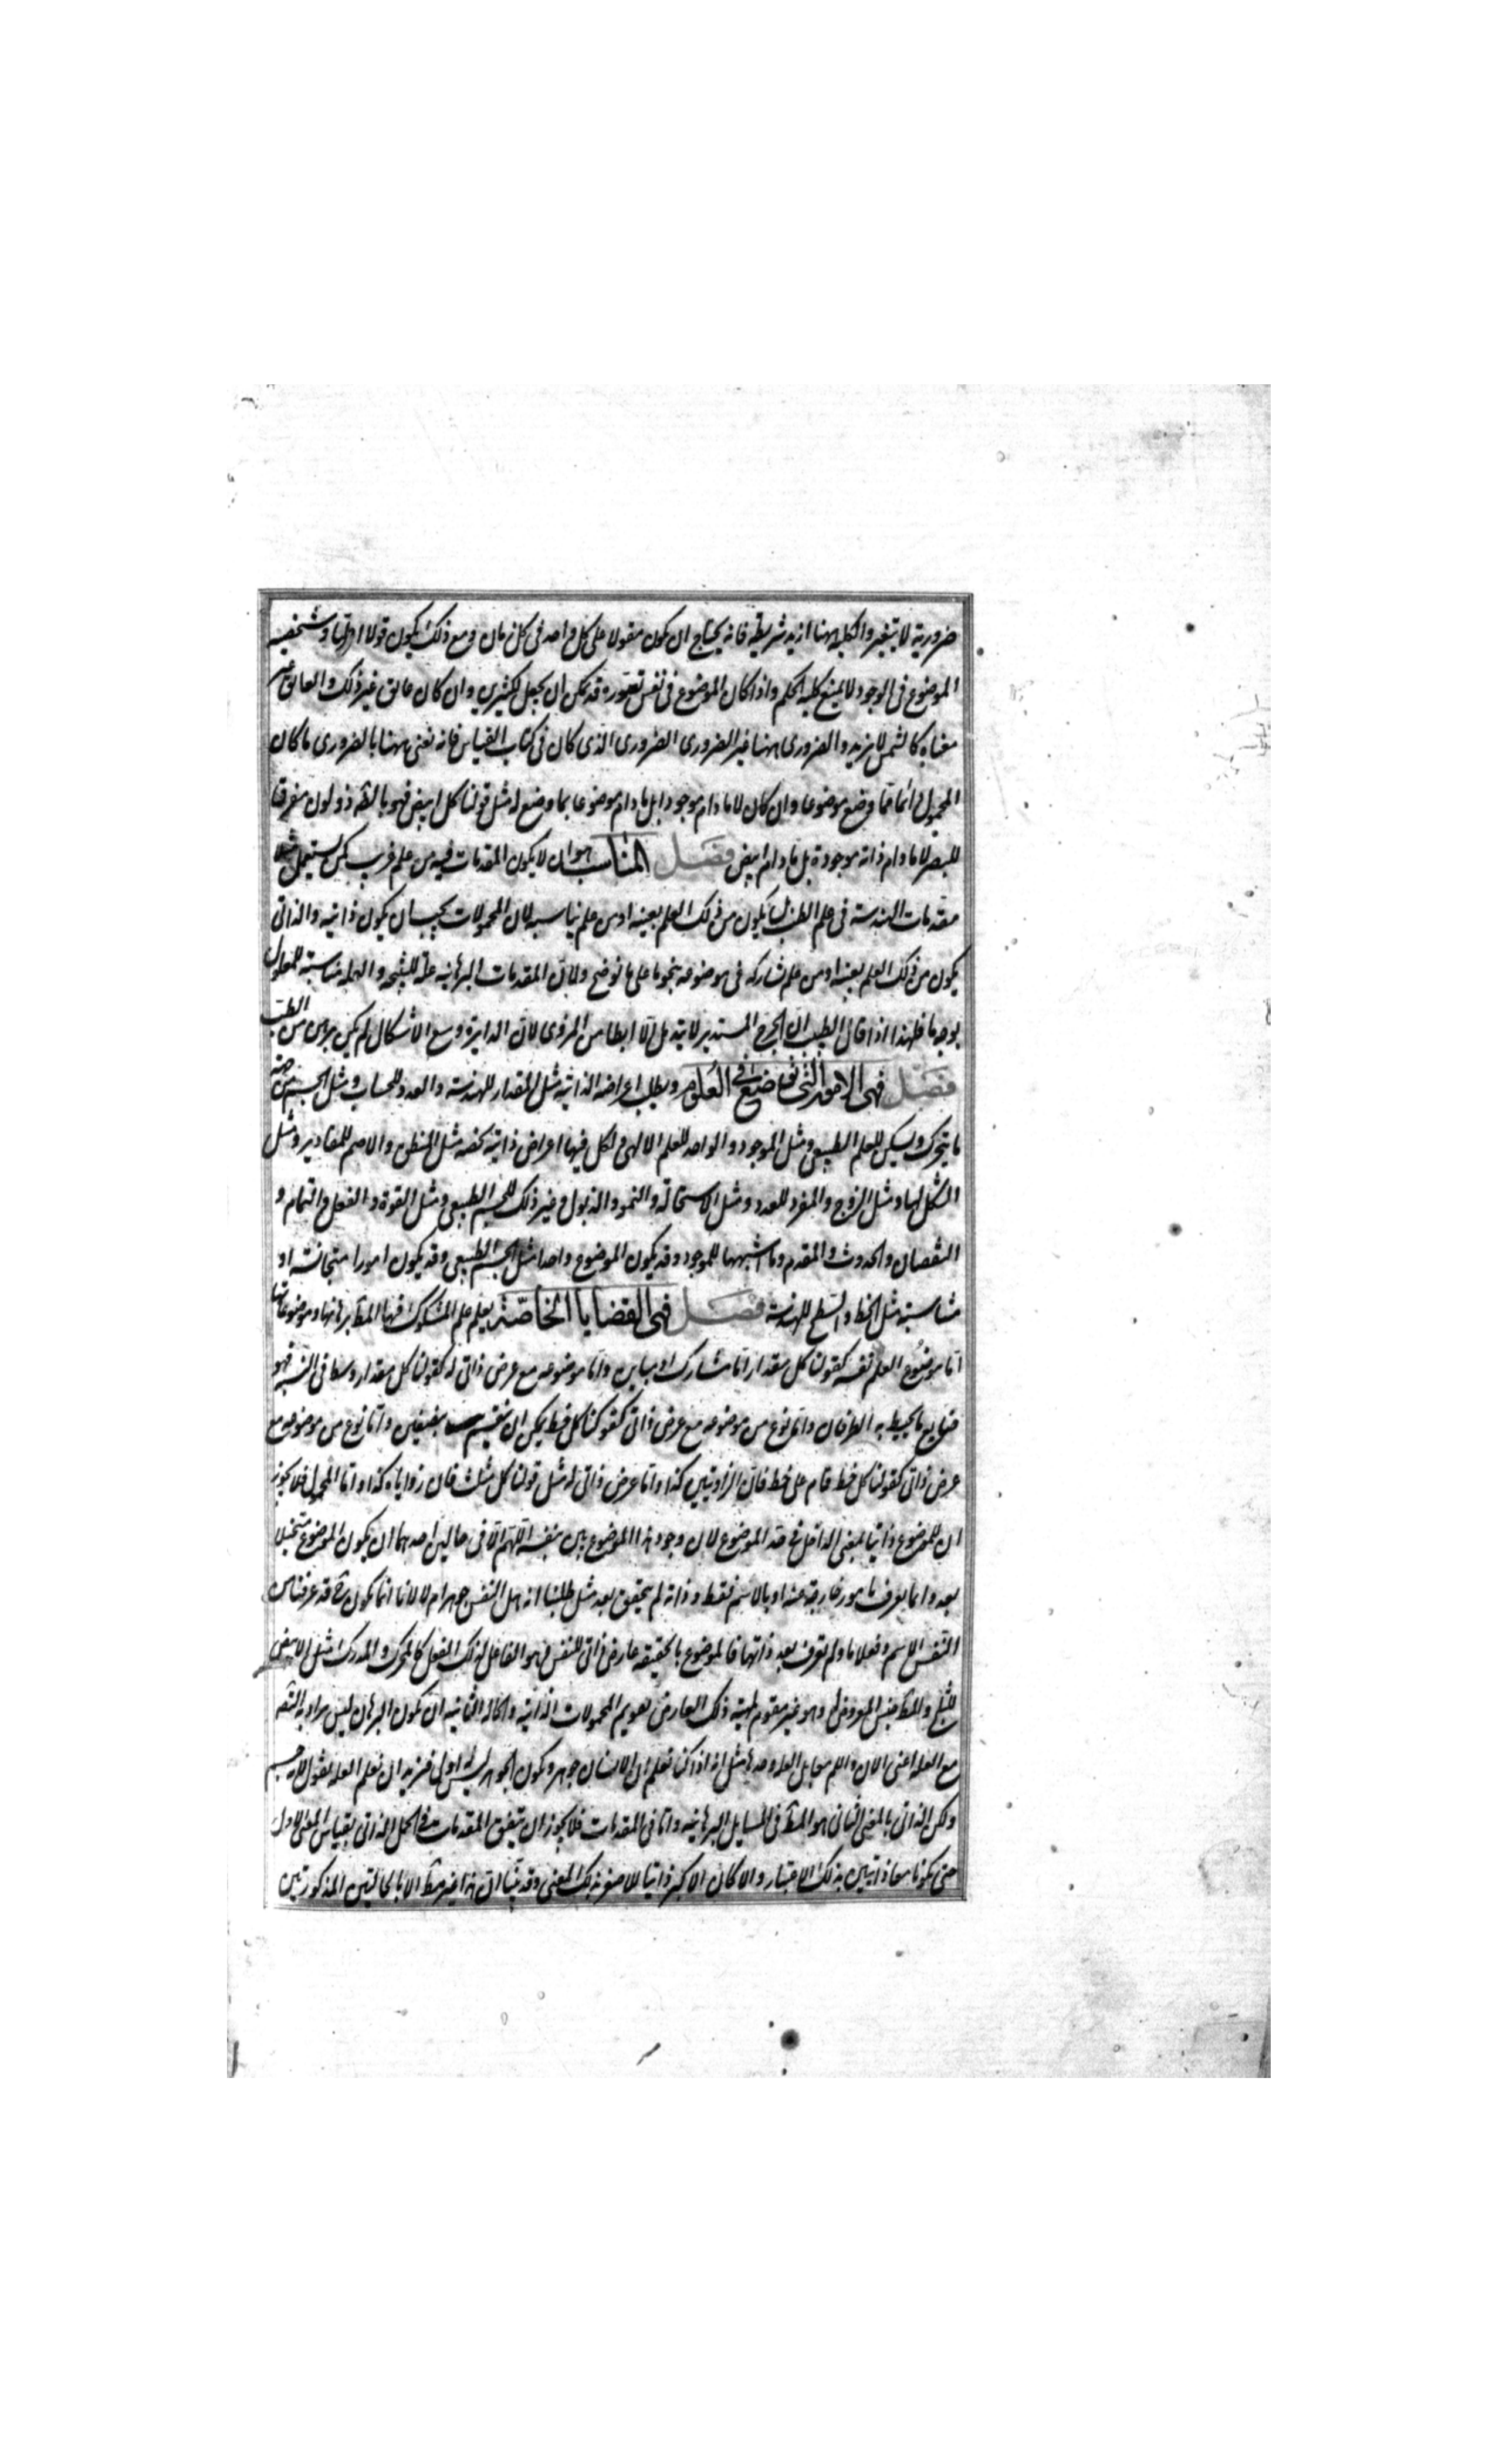 ضرورية لا يتغير والكلية ههنا ازيد شريطة فانه يحتاج ان يكون مقولا على كل واحد فى كل زمان ومع ذلك يكون قولا اوليا وشخصية
الموضوع فى الوجود لا يمنع كلية الحكم واذا كان الموضوع فى نفس تصوره قد يمكن ان يجعل لكثيرين وان كان عائق غير ذلك والعائق غير
معناه كالشمس لا زيد والضرورى ههنا غير الضرورى الذى كان فى كتاب القياس فانه نعنى ههنا بالضرورى ما كان
المحمول دائما لما وضع موضوعا وان كان لا ما دام موجودا بل ما دام موضوعا بما وضع له مثل قولنا كل ابيض فهو بالضرورة ذو لون مفرقا
للبصر لا ما دام ذاته موجودة بل ما دام ابيض فصل المناسب هو ان لا يكون المقدمات فيه من علم غريب كمن يستعمل
مقدمات الهندسة فى علم الطب بل يكون من ذلك العلم بعينه او من علم يناسبه لان المحمولات يجب ان يكون ذاتية والذاتى
يكون من ذلك العلم بعينه او من علم يشاركه فى موضوعه بنحو ما على ما نوضح ولان المقدمات البرهانية علة للنتيجة والعلة مناسبة للمعلول
بوجه ما فلهذا اذا قال الطبيب ان الجرح المستدير لا يندمل الا ابطا من المزوى لان الدايرة اوسع الاشكال لم يكن برهن من الطب
فصل فى الامور التى توضع فى العلوم ويطلب اعراضه الذاتية مثل المقدار للهندسة والعدد للحساب ومثل الجسم من جهة
ما يتحرك ويسكن للعلم الطبيعى ومثل الموجود والواحد للعلم الالهى ولكل فيها اعراض ذاتية تخصه مثل المنطق والاصم للمقادير ومثل
الشكل لها ومثل الزوج والفرد للعدد ومثل الاستحالة والنمو والذبول وغير ذلك للجسم الطبيعى ومثل القوة والفعل والتمام و
النقصان والحدوث والقدم وما اشبهها للموجود وقد يكون الموضوع واحدا مثل الجسم الطبيعى وقد يكون امورا متجانسة او
متناسبة مثل الخط والسطح للهندسة فصل فى القضايا الخاصة بعلم علم المشكوك فيها المطلوب برهانها وموضوعاتها
اما موضوع العلم نفسه كقولنا كل مقدار اما مشارك او مباين واما موضوعه مع عرض ذاتى له كقولنا كل مقدار وسط فى النسبة فهو
ضلع ما يحيط به الطرفان واما نوع من موضوعه مع عرض ذاتى كقولنا كل خط يمكن ان ينقسم بنصفين واما نوع من موضوعه مع
عرض ذاتى كقولنا كل خط قام على خط فان الزاويتين كذا واما عرض ذاتى له مثل قولنا كل مثلث فان زواياه كذا واما المحمول فلا يجوز
ان للموضوع ذاتيا بمعنى الداخل فى حد الموضوع لان وجود هذا الموضوع بين بنفسه اللهم الا فى حالين احدهما ان يكون الموضوع متخيلا
بعد وانما يعرف بامور خارجة عنه او بالاسم فقط وذاته لم يتحقق بعد مثل طلبنا انه هل النفس جوهر ام لا لانا انما يكون قد عرفنا من
النفس الاسم وفعلا ما ولم نعرف بعد ذاتها فالموضوع بالحقيقة عارض ذاتى للنفس فهو الفاعل لذلك الفعل كالمحرك والمدرك مثل الابيض
للثلج والمطلوب جنس المعروض له وهو غير مقوم لمهية ذلك العارض تقويم المحمولات الذاتية والحالة الثانية ان يكون البرهان ليس يراد به
مع العلة اعنى الان واللم مقابل العلة وحدها مثل انه اذا كنا نعلم ان الانسان جوهر وكون الجوهر ليس له اولى فنريد ان نعلم العلة نقول لانه جسم
ولكن الذاتى بالمعنى الثانى هو المطلوب فى المسايل البرهانية واما فى المقدمات فلا يجوز ان يتفق المقدمات فى الحمل الذاتى بقياس المعنى الاول
حتى يكونا معا ذاتيين بذلك الاعتبار والا كان الاكبر ذاتيا للاصغر بذلك المعنى وقد بينا ان هذا غير مطلوب الا بالحالتين المذكورتين